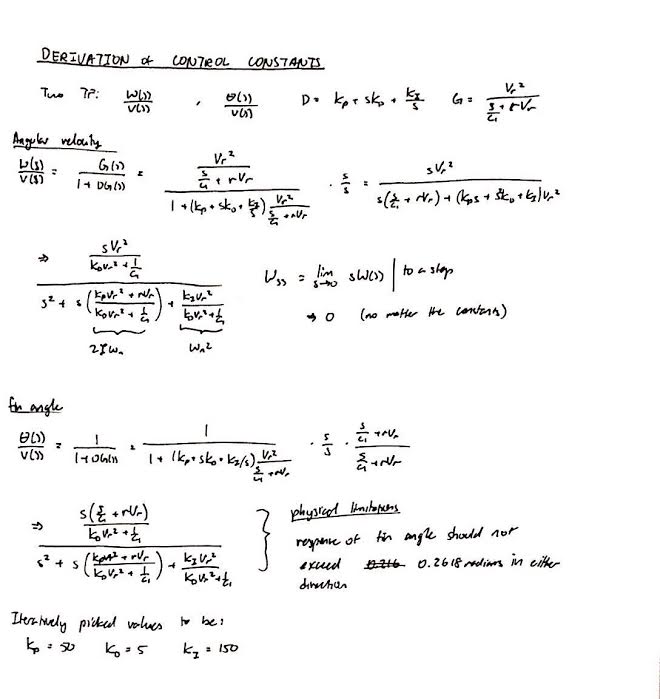 DERIVATION of CONTROL CONSTANTS
Two TF: W(s)/V(s) , Θ(s)/V(s) D = kp + skD + kI/s G = Vr²/(s/C1 + rVr)
Angular velocity
W(s)/V(s) = G(s)/(1 + DG(s)) = (Vr²/(s/C1 + rVr))/(1 + (kp + skD + kI/s) Vr²/(s/C1 + rVr)) · s/s = sVr²/(s(s/C1 + rVr) + (kps + s²kD + kI)Vr²)
⇒ (sVr²/(kDVr² + 1/C1))/(s² + s((kpVr² + rVr)/(kDVr² + 1/C1)) + kIVr²/(kDVr² + 1/C1)) Wss = lim s→0 sW(s) | to a step
→ 0 (no matter the constants)
2ζωn ωn²
fin angle
Θ(s)/V(s) = 1/(1+DG(s)) = 1/(1 + (kp + skD + kI/s) Vr²/(s/C1 + rVr)) · s/s · (s/C1 + rVr)/(s/C1 + rVr)
⇒ (s(s/C1 + rVr)/(kDVr² + 1/C1))/(s² + s((kpVr² + rVr)/(kDVr² + 1/C1)) + kIVr²/(kDVr² + 1/C1))
physical limitations
response of fin angle should not
exceed 0.2618 radians in either
direction
Iteratively picked values to be:
kp = 50 kD = 5 kI = 150